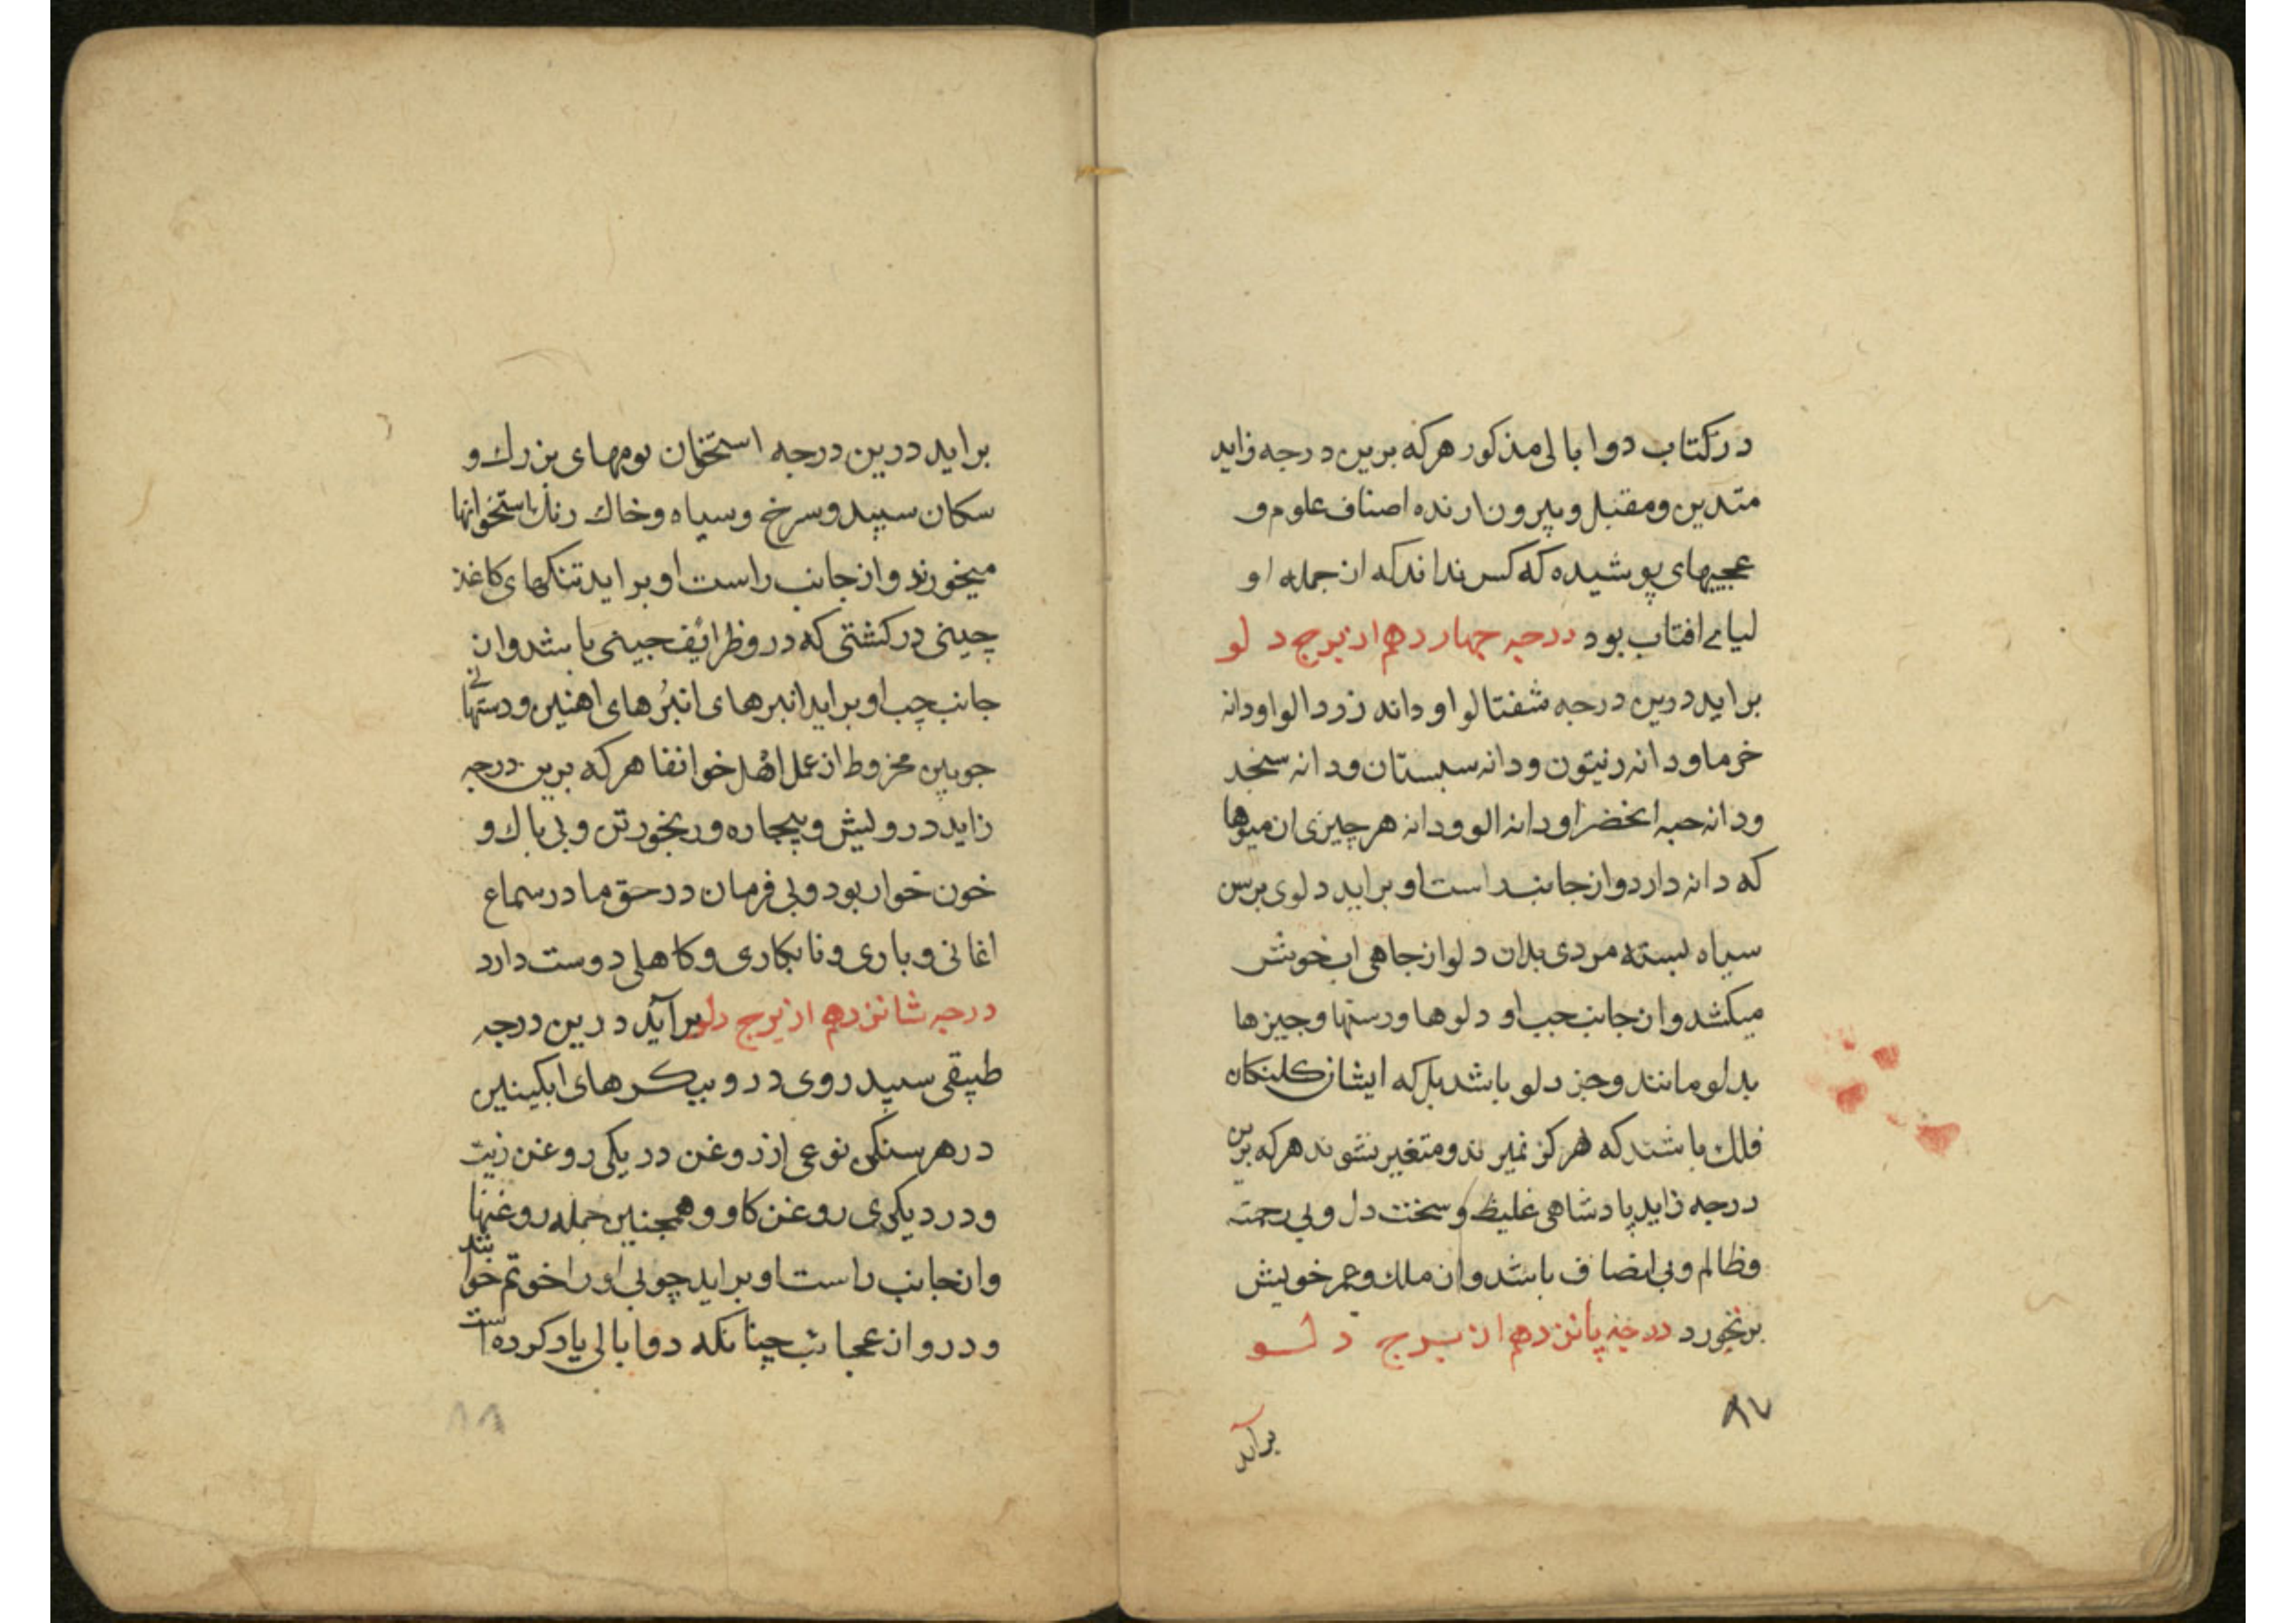 در کتاب دوا بالی مذکور هرکه برین درجه زاید
متدین و مقبل و بیرون ارنده اصناف علوم و
عجیبهای پوشیده که کس نداند که از جمله او
افتاب بود درجه چهاردهم از برج دلو
براید درین درجه شفتالو او دانه زردالو او دانه
خرما و دانه زیتون و دانه سبستان و دانه سنجد
و دانه حبه الخضرا و دانه الو و دانه هر چیزی از میوها
که دانه دارد و از جانب راست او براید دلوی برسن
سیاه بسته مردی بدان دلو از جاهی اب خوش
میکشد و از جانب جب او دلوها و رسنها و جیزها
بدلو مانند و جز دلو باشد بل که ایشان کلنکان
فلك باشند که هرکز نمیرند و متغیر نشوند هرکه برین
درجه زاید پادشاهی غلیظ و سخت دل و بی رحمت
و ظالم و بی انصاف باشد و از ملك و عمر خویش
برنخورد درجه پانزدهم از برج دلو
۸۷
برآید
براید درین درجه استخوان بومهای بزرك و
سکان سپید و سرخ و سیاه و خاك رنك باستخوانها
میخورند و از جانب راست او براید تنکهای کاغذ
چینی در کشتی که در و ظرائف جینی باشد و از
جانب چپ او براید انبرهای انبُرهای اهنین و دستهائی
جوبین مخروط از عمل اهل خوانقا هرکه برین درجه
زاید درویش و بیچاره و رنجور تن و بی باك و
خون خوار بود و بی فرمان در حق مادر سماع
اغانی و بازی و نابکاری و کاهلی دوست دارد
درجه شانزدهم از برج دلو برآید درین درجه
طبقی سپید روی در و بیکرهای ابکینین
در هر سنکی نوعی از روغن در یکی روغن زیت
و در دیکری روغن کاو و همجنین جمله روغنها
و از جانب راست او براید چوبی او را خوتم خوانند
و در و از عجائب چنانکه دوا بالی یاد کرده است
۸۸